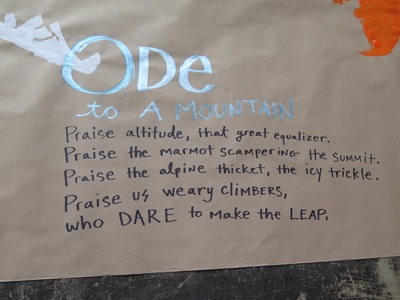 Ode
to A MOUNTAIN
Praise altitude, that great equalizer.
Praise the marmot scampering the summit.
Praise the alpine thicket, the icy trickle.
Praise us weary climbers,
who DARE to make the LEAP.